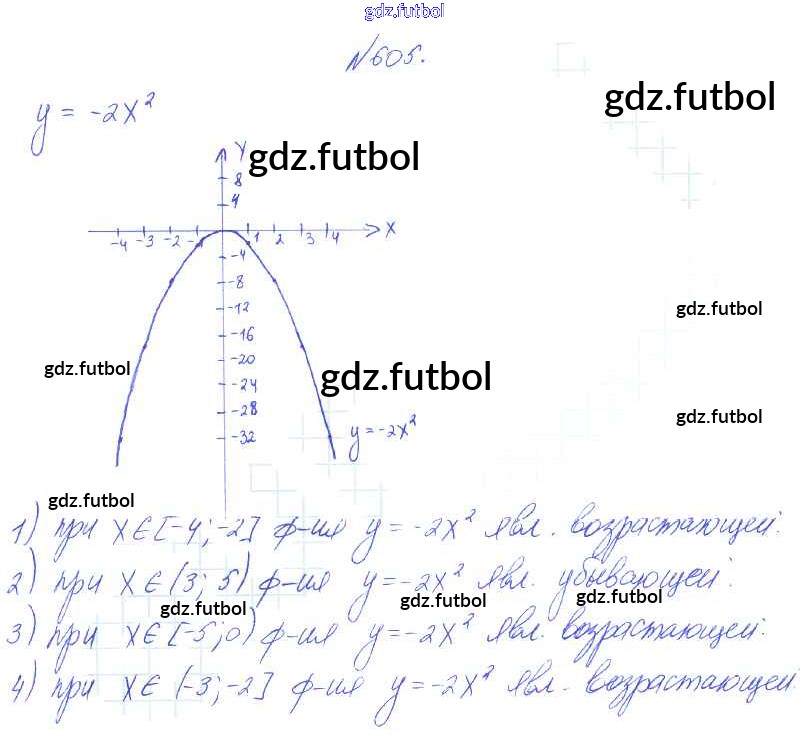 gdz.futbol
№605.
gdz.futbol
y = -2x²
Y gdz.futbol
8
4
-4 -3 -2 -1 1 2 3 4 X
-4
-8
-12
gdz.futbol
-16
-20
gdz.futbol
gdz.futbol
-24
-28
gdz.futbol
-32
y = -2x²
gdz.futbol
1) при x∈[-4; -2] ф-ия y = -2x² явл. возрастающей.
2) при x∈(3; 5) ф-ия y = -2x² явл. убывающей.
gdz.futbol gdz.futbol gdz.futbol
3) при x∈[-5; 0) ф-ия y = -2x² явл. возрастающей.
4) при x∈(-3; -2] ф-ия y = -2x² явл. возрастающей